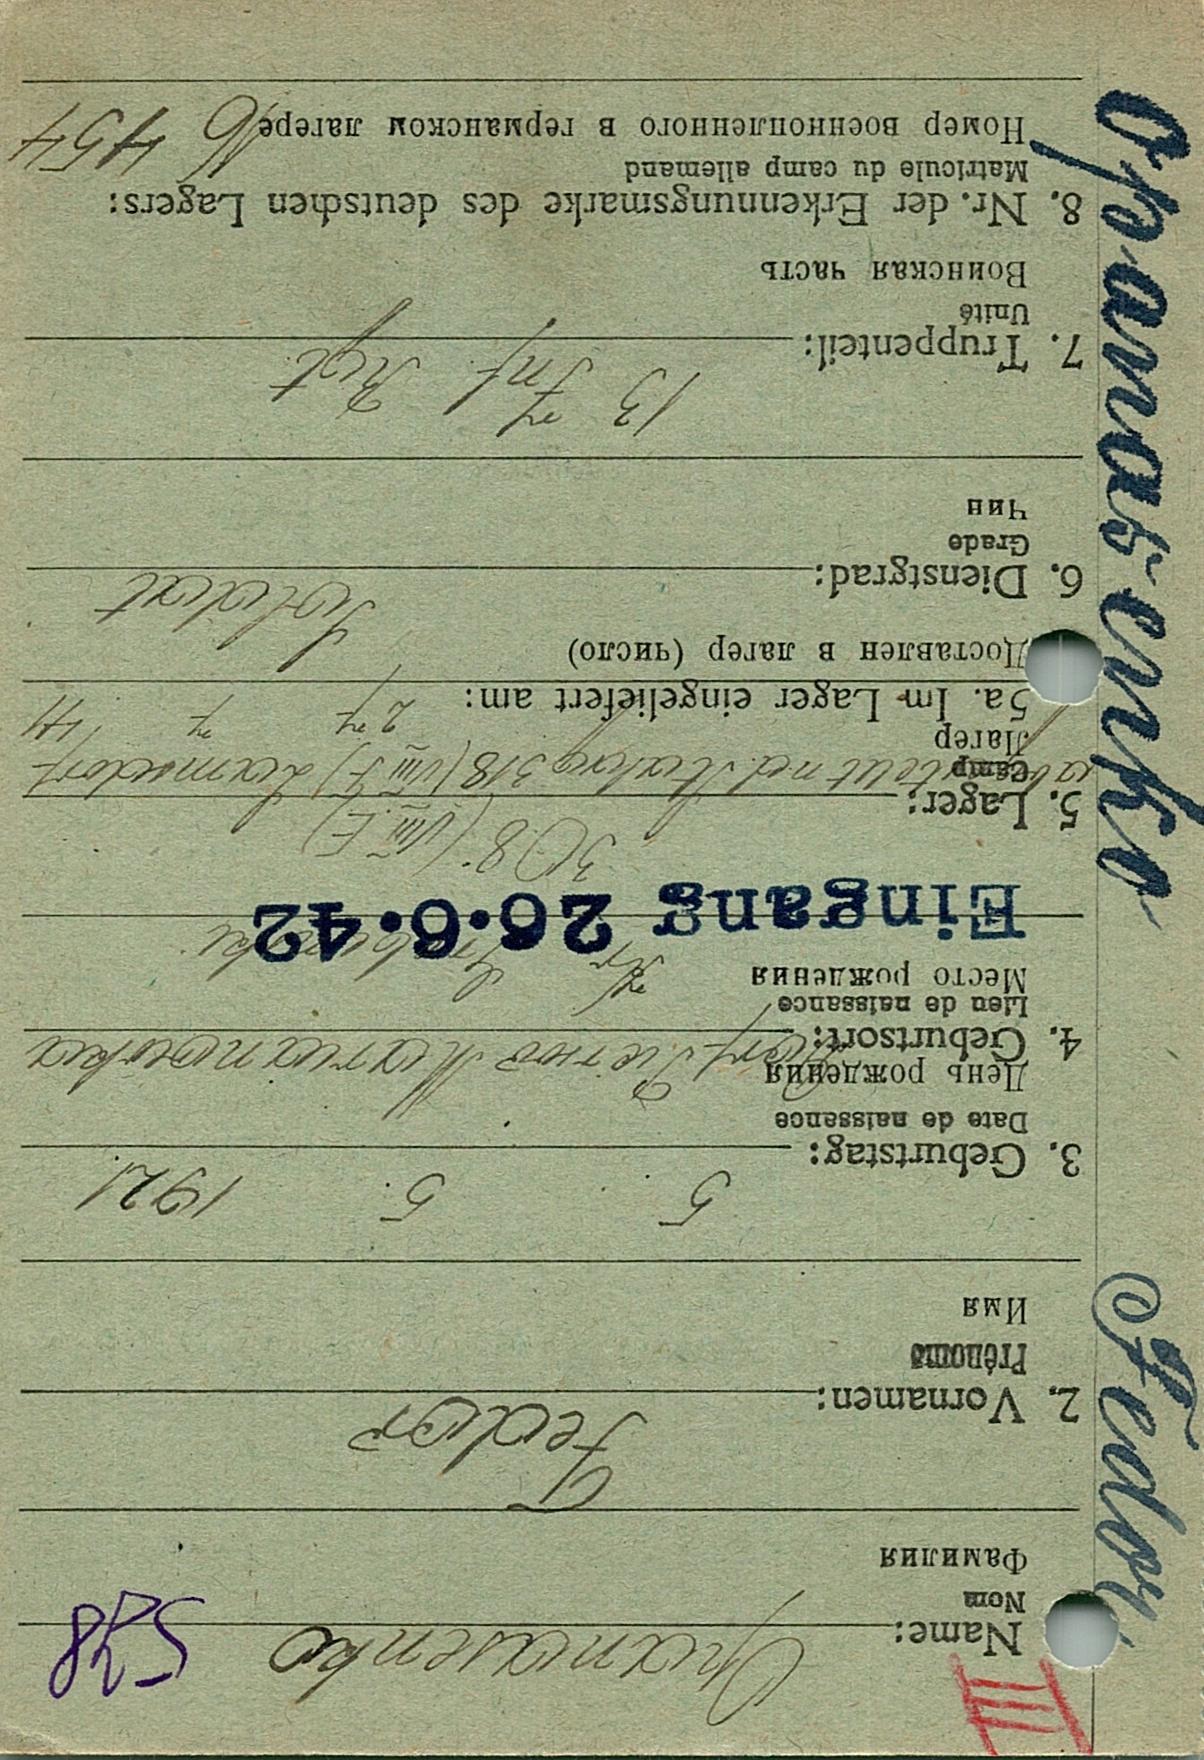 III
528
Name: Opanasenko
Nom
Фамилия
Fedor
2. Vornamen:
Prénoms
Имя
3. Geburtstag: 5. 5. 1921.
Date de naissance
День рождения
4. Geburtsort:
Lieu de naissance
Место рождения
Eingang 26.6.42
308 (VIII E)
5. Lager: Stalag 318 (VIII F) Lamsdorf
Camp
Лагерь
5a. Im Lager eingeliefert am:
Доставлен в лагер (число)
6. Dienstgrad: Soldat
Grade
Чин
13 Inf. Rgt
7. Truppenteil:
Unité
Воинская часть
8. Nr. der Erkennungsmarke des deutschen Lagers:
Matricule du camp allemand
Номер военнопленного в германском лагере 16 454
Fedor Opanasenko